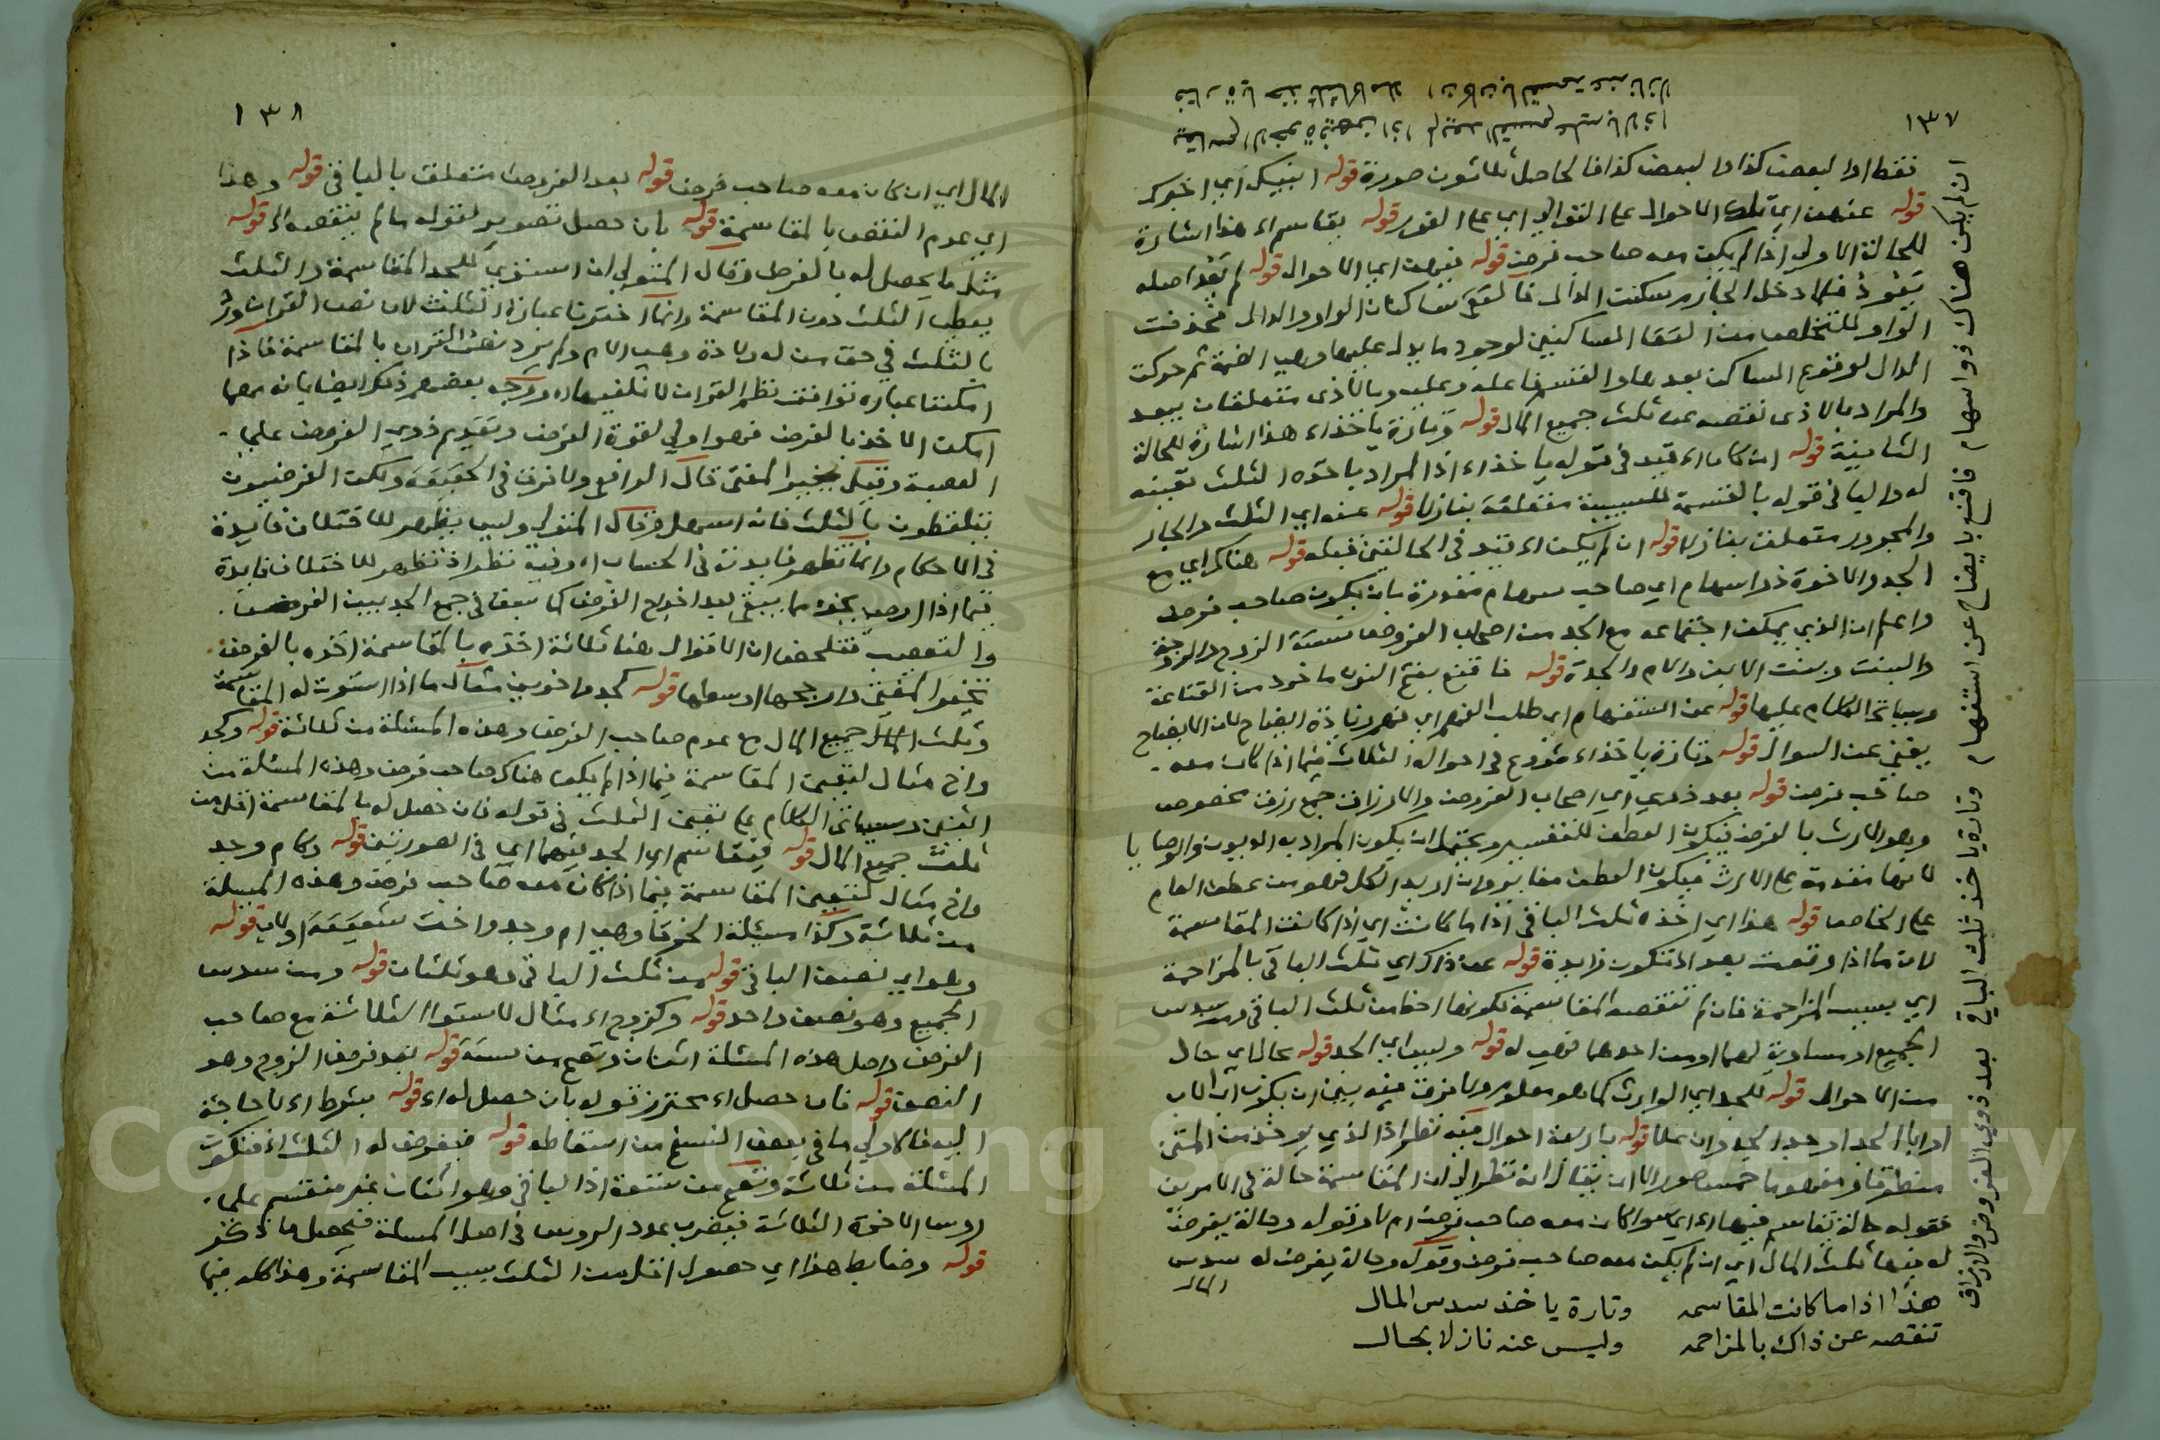 ١٣٧
يقاسم الاخوة فيهن اذا لم يعد القسم عليه بالاذا
فتارة ياخذ ثلثا كاملا ان كان بالقسمة عنه نازلا
فقط اما لبعض كذا ولبعض كذا فالحاصل ثلاثون صورة قوله انبيك اي اخبرك
قوله عنهن اي تلك الاحوال على التوالي اي على الفور قوله يقاسم اه هذا اشارة
للحالة الاولى اذا لم يكن معه صاحب فرض قوله فيهن اي الاحوال قوله لم يعد اصله
يعود فلما دخل الجازم سكنت الدال فالتقى ساكنان الواو والدال فحذفت
الواو للتخلص من التقا الساكنين لوجود ما يدل عليها وهي الضمة ثم حركت
الدال لوقوع الساكن بعدها والقسم فاعله وعليه وبالاذى متعلقان بيعد
والمراد بالاذى نقصه عن ثلث جميع المال قوله وتارة ياخذ اه هذا اشارة للحالة
الثانية قوله ان كان اه قيد في قوله ياخذ اه اذا المراد باخذه الثلث تعينه
له والبا في قوله بالقسمة للسببية متعلقة بنازلا قوله عنه اي الثلث والجار
والمجرور متعلق بنازلا قوله ان لم يكن اه قيد في الحالتين قبله قوله هناك اي مع
الجد والاخوة ذو اسهام اي صاحب سهام مقدرة بان يكون صاحب فرض
واعلم ان الذي يمكن اجتماعه مع الجد من اصحاب الفروض ستة الزوج والزوجة
والبنت وبنت الابن والام والجدة قوله فاقنع بفتح النون ماخوذ من القناعة
وسياتي الكلام عليها قوله عن استفهام اي طلب الفهم اي فهم زيادة ايضاح لان الايضاح
يغني عن السوال قوله وتارة ياخذ اه شروع في احواله الثلاث فيما اذا كان معه
صاحب فرض قوله بعد ذوي اي اصحاب الفروض والارزاق جمع رزق مخصوص
وهو الارث بالفرض فيكون العطف للتفسير ويحتمل ان يكون المراد به الديون والوصايا
لانها مقدمة على الارث فيكون العطف مغاير وان اريد الكل فهو من عطف العام
على الخاص قوله هذا اي اخذه ثلث الباقي اذا ما كانت اي اذا كانت المقاسمة
لان ما اذا وقعت بعد اذا تكون زايدة قوله عن ذاك اي ثلث الباقي بالمزاحمة
اي بسبب المزاحمة فان لم تنقصه المقاسمة لكونها احظ من ثلث الباقي ومن سدس
الجميع او مساوية لهما او من احدهما فهي له قوله وليس اي الجد قوله بحال اي حال
من الاحوال قوله للجد اي الوارث كما هو معلوم ولا فرق فيه بين ان يكون اب الاب
او ابا الجد او جد الجد وان علا قوله باربعة احوال فيه نظر اذ الذي يوخذ من المتن
منطوقا ومفهوما خمس صور الا ان يقال انه نظر الى ان المقاسمة حالة في الامرين
فقوله حالة يقاسم فيها اه اي سوا كان معه صاحب فرض ام لا وقوله وحالة يفرض
له فيها ثلث المال اي ان لم يكن معه صاحب فرض وقوله وحالة يفرض له سدس
المال
هذا اذا ما كانت المقاسمه تنقصه عن ذاك بالمزاحمه
وتارة ياخذ سدس المال وليس عنه نازلا بحال
ان لم يكن هناك ذو اسهام فاقنع بايضاح عن استفهام وتارة ياخذ ثلث الباقي بعد ذوي الفروض والارزاق
١٣٨
المال اي ان كان معه صاحب فرض قوله بعد الفروض متعلق بالباقي قوله وهذا
اي عدم النقص بالمقاسمة قوله بان حصل تصوير لقوله ما لم ينقصه اه قوله
مثل ما يحصل له بالفرض وقال المتولي ان استوى للجد المقاسمة والثلث
يعطى الثلث دون المقاسمة وانما اخترنا عبارة الثلث لان نص القران ورد
بالثلث في حق من له ولادة وهي الام ولم يرد نص القران بالمقاسمة فاذا
امكننا عبارة توافق نظم القران لا نلغيها اه ووجه بعضهم ذلك ايضا بانه مهما
امكن الاخذ بالفرض فهو اولى لقوة الفرض وتقديم ذوي الفروض على
العصبة وقيل يخير المفتي قال الرافعي ولا فرق في الحقيقة ولكن الفرضيون
يتلفظون بالثلث فانه اسهل وقال المتولي وليس يظهر للاختلاف فايدة
في الاحكام وانما تظهر فايدته في الحساب اه وفيه نظر اذ تظهر للاختلاف فايدة
فيما اذا اوصى بجزء مما يبقى بعد اخراج الفرض كما سبق في جمع الجد بين الفرض
والتعصيب فتلخص ان الاقوال هنا ثلاثة اخذه بالمقاسمة اخذه بالفرض
تخير المفتي وارجحها اوسطها قوله كجد واخوين مثال ما اذا استوت له المقاسمة
وثلث جميع المال مع عدم صاحب الفرض وهذه المسئلة من ثلاثة قوله وكجد
واخ مثال لتعين المقاسمة فيما اذا لم يكن هناك صاحب فرض وهذه المسئلة من
اثنين وسياتي الكلام على تعين الثلث في قوله فان حصل له بالمقاسمة اقل من
ثلث جميع المال قوله فيقاسم اي الجد فيهما اي في الصورتين قوله وكام وجد
واخ مثال لتعين المقاسمة فيما اذا كان معه صاحب فرض وهذه المسئلة
من ثلاثة وكذا مسئلة الخرقا وهي ام وجد واخت شقيقة او لاب قوله
وهو اي نصف الباقي قوله من ثلث الباقي وهو ثلثان قوله ومن سدس
الجميع وهو نصف واحد قوله وكزوج اه مثال لاستوا الثلاثة مع صاحب
الفرض واصل هذه المسئلة اثنان وتصح من ستة قوله بعد فرض الزوج وهو
النصف قوله فان حصل اه محترز قوله بان حصل له اه قوله بشرط اه لا حاجة
اليه فالاولى ما في بعض النسخ من اسقاطه قوله فيفرض له الثلث اه فتكون
المسئلة من ثلاثة وتصح من تسعة اذ الباقي وهو اثنان غير منقسم على
روس الاخوة الثلاثة فيضرب عدد الروس في اصل المسئلة فيحصل ما ذكر
قوله وضابط هذا اي حصول اقل من الثلث بسبب المقاسمة وهذا كله فيما